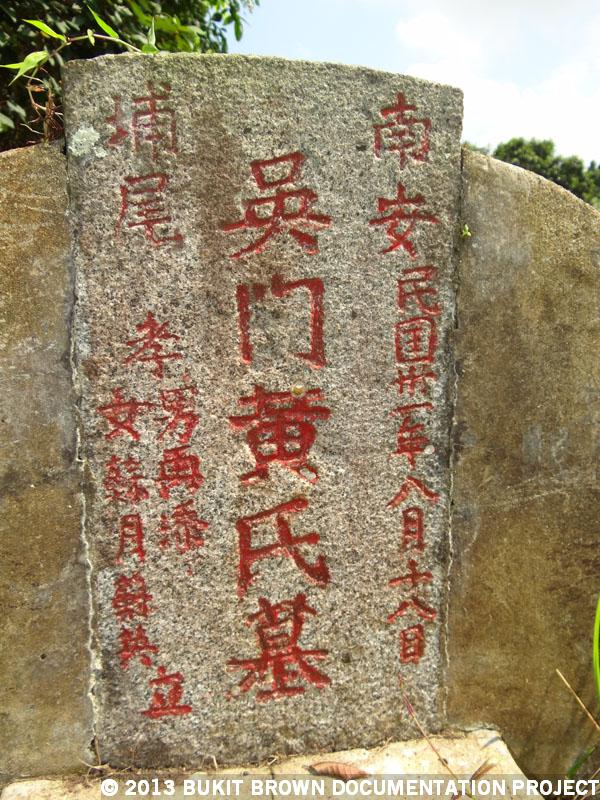 南安
民国卅一年八月十八日
吳门黄氏墓
埔尾
孝
男再添
女月英
立
© 2013 BUKIT BROWN DOCUMENTATION PROJECT